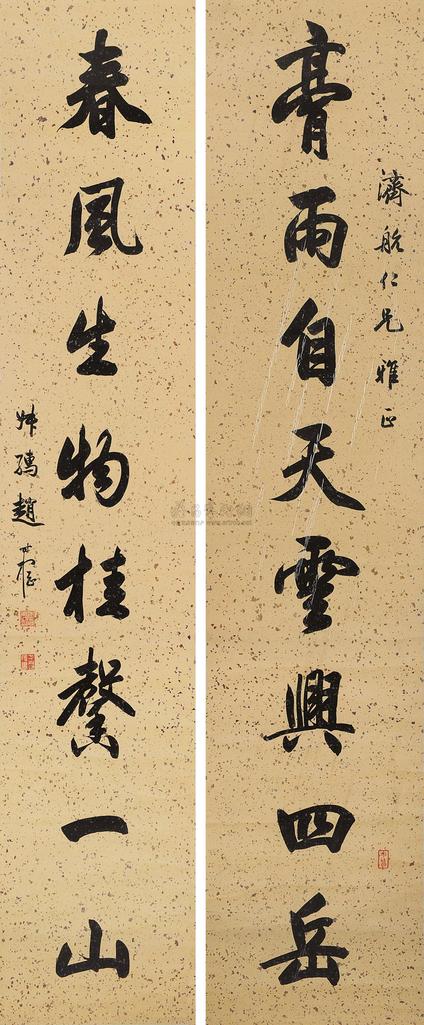 濟航仁兄雅正
膏雨自天雲興四岳
春風生物桂馨一山
趙世